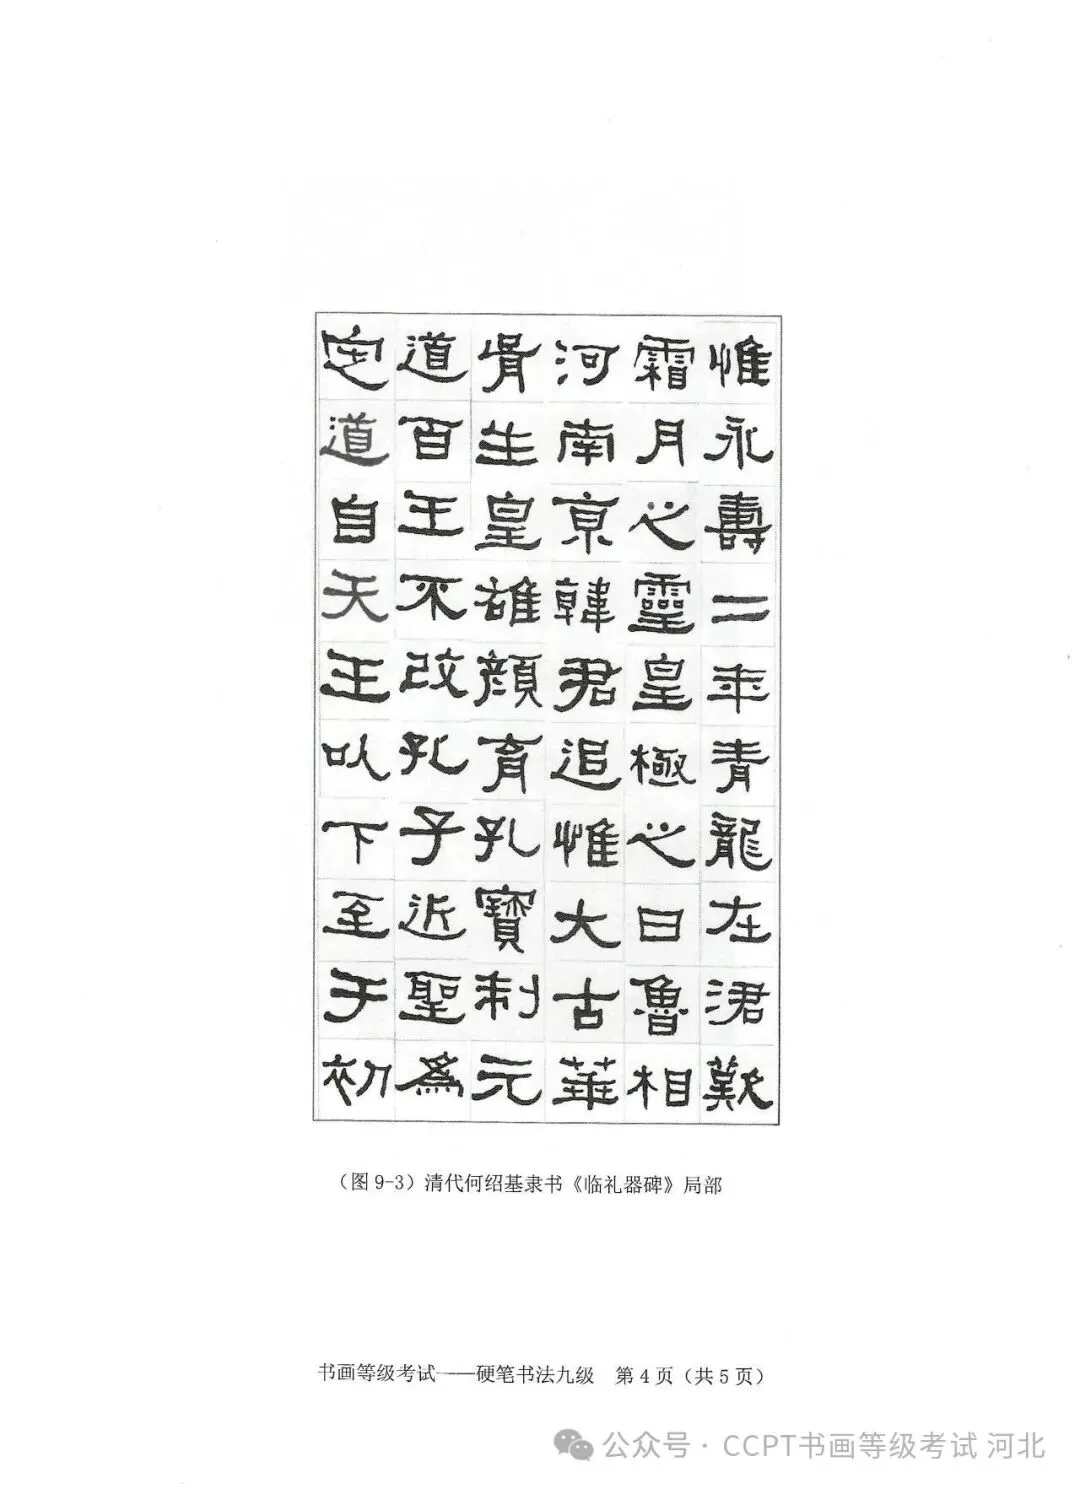 惟永壽二年青龍在涒歎
霜月之靈皇極之日魯相
河南京韓君追惟大古華
胥生皇雄顏育孔寶制元
道百王不改孔子近聖為
定道自天王以下至于初
（图 9-3）清代何绍基隶书《临礼器碑》局部
书画等级考试——硬笔书法九级 第 4 页（共 5 页）
公众号 · CCPT书画等级考试 河北